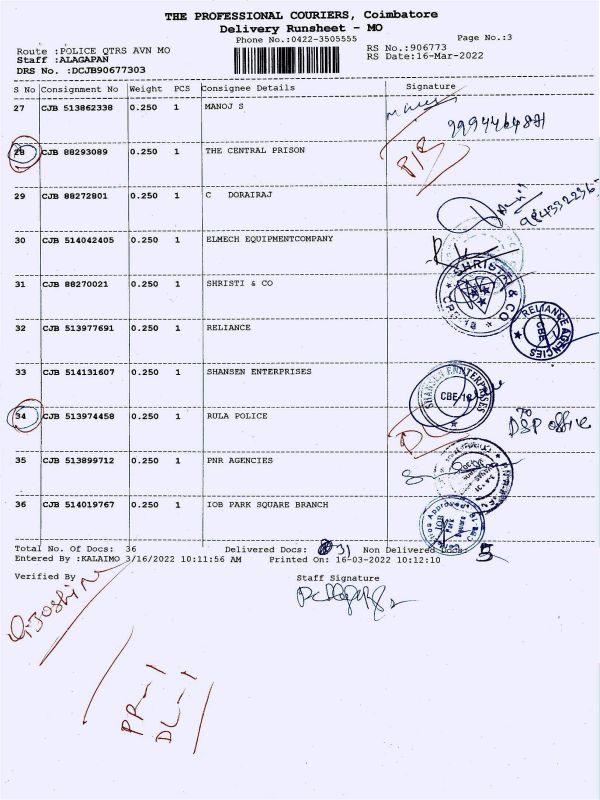 THE PROFESSIONAL COURIERS, Coimbatore
Delivery Runsheet - MO
Phone No.:0422-3505555
Page No.:3
Route :POLICE QTRS AVN MO
RS No.:906773
Staff :ALAGAPAN
RS Date:16-Mar-2022
DRS No. :DCJB90677303
S No Consignment No Weight PCS Consignee Details Signature
27 CJB 513862338 0.250 1 MANOJ S
28 CJB 88293089 0.250 1 THE CENTRAL PRISON
29 CJB 88272801 0.250 1 C DORAIRAJ
30 CJB 514042405 0.250 1 ELMECH EQUIPMENTCOMPANY
31 CJB 88270021 0.250 1 SHRISTI & CO
SHRISTI & CO
32 CJB 513977691 0.250 1 RELIANCE
RELIANCE AGENCIES CBE
33 CJB 514131607 0.250 1 SHANSEN ENTERPRISES
SHANSEN ENNTERPRISES
34 CJB 513974458 0.250 1 RULA POLICE
To DSP office
35 CJB 513899712 0.250 1 PNR AGENCIES
36 CJB 514019767 0.250 1 IOB PARK SQUARE BRANCH
Total No. Of Docs: 36 Delivered Docs: 31 Non Delivered Docs: 5
Entered By :KALAIMO 3/16/2022 10:11:56 AM Printed On: 16-03-2022 10:12:10
Verified By Staff Signature
PR-1
DL-1